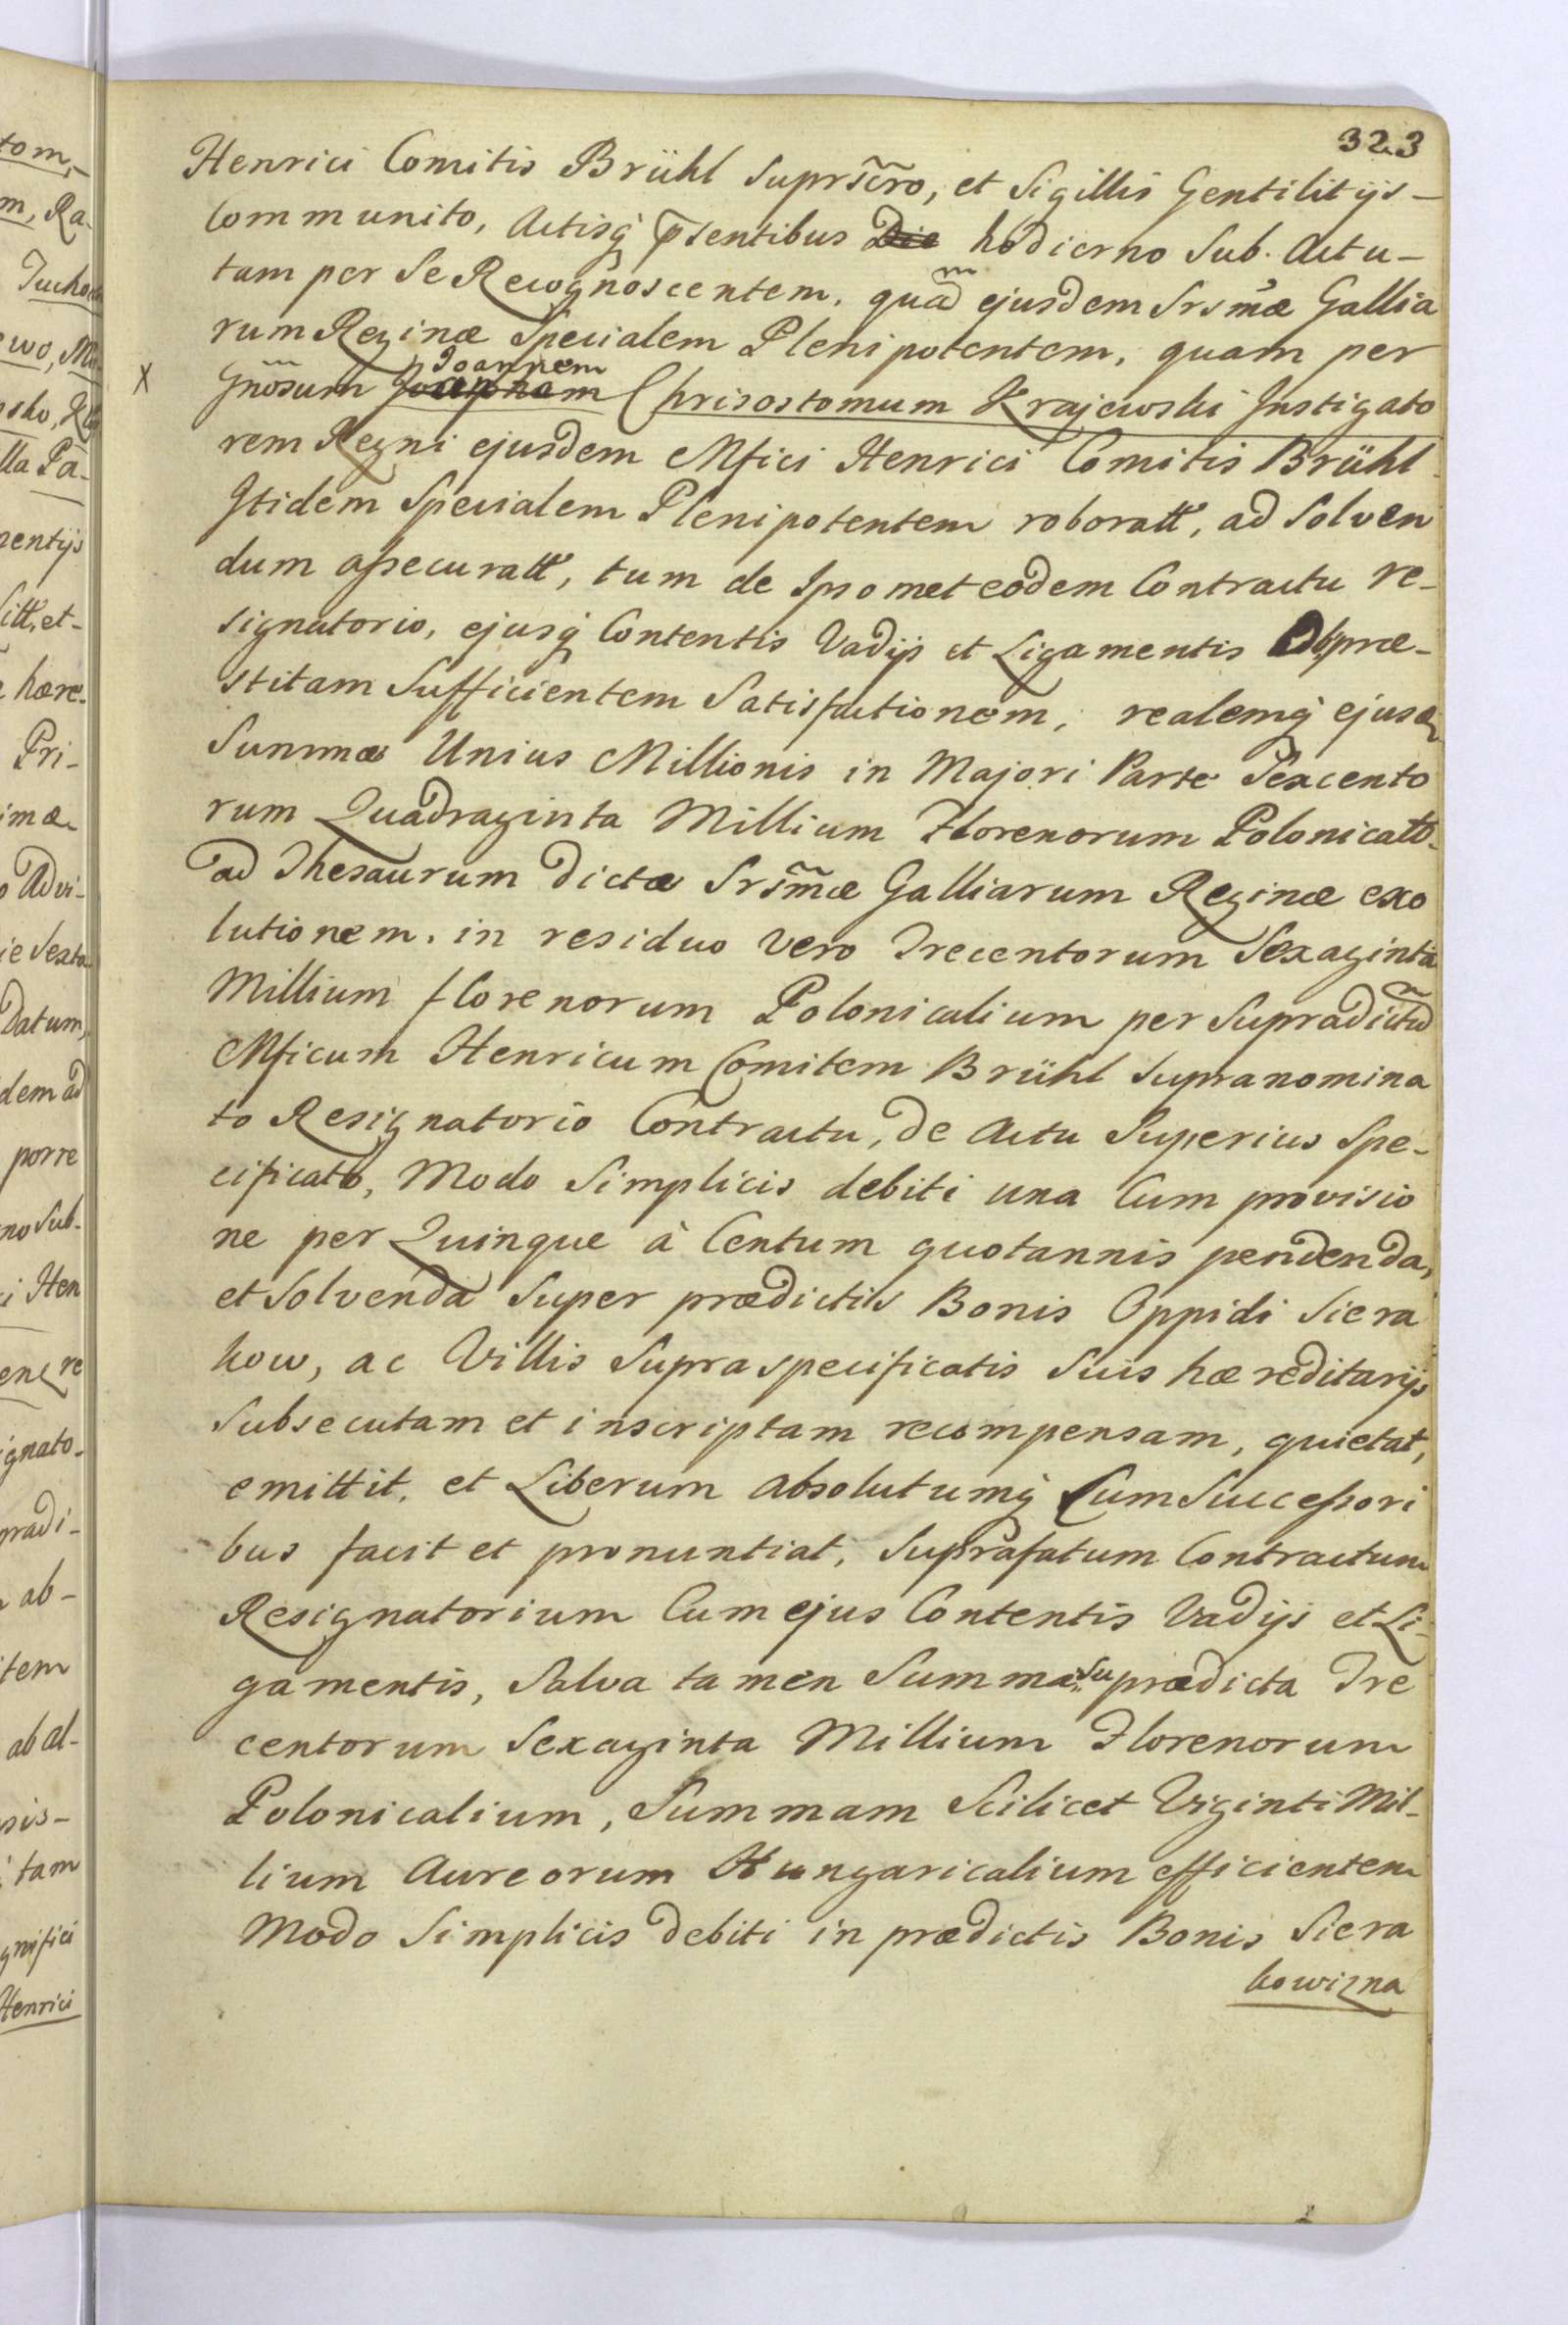 323
Henrici Comitis Brühl suprscro, et Sigillis Gentilitijs-
Communito, Actisq̃ p̃sentibus Die hodierno Sub. Actu-
tam per Se Recognoscentem, quam ejusdem Srsmæ Gallia
rum Reginæ Specialem Plenipotentem, quam per
Joannem
X Gnosum Chrisostomum Krajewski Instigato
rem Regni ejusdem Mfici Henrici Comitis Brühl
Itidem Specialem Plenipotentem roboratt, ad Solven
dum assecuratt, tum de Ipsomet eodem Contractu re-
signatorio, ejusq̃ Contentis Vadijs et Ligamentis Ob præ-
stitam Sufficientem Satisfactionem, realemq̃ ejusd
Summæ Unius Millionis in Majori Parte Sexcento
rum Quadraginta Millium Florenorum Polonicatt
ad Thesaurum dictæ Srsmæ Galliarum Reginæ exo
lutionem, in residuo vero Trecentorum Sexaginta
Millium florenorum Polonicalium per Supradictũ
Mficum Henricum Comitem Brühl Supranomina
to Resignatorio Contractu, de Actu Superius Spe-
cificato, Modo Simplicis debiti una Cum provisio
ne per Quinque à Centum quotannis pendenda,
et Solvenda Super prædictis Bonis Oppidi Siera
kow, ac Villis Supraspecificatis Suis hæreditarijs
Subsecutam et inscriptam recompensam, quietat,
emittit, et Liberum absolutumq̃ Cum Successori
bus facit et pronuntiat, Suprafatum Contractum
Resignatorium Cum ejus Contentis Vadijs et Li-
gamentis, Salva tamen Summa su prædicta Tre
centorum Sexaginta Millium Florenorum
Polonicalium, Summam Scilicet Viginti Mil-
lium Aureorum Hungaricalium efficientem
Modo Simplicis debiti in prædictis Bonis Siera
kowizna